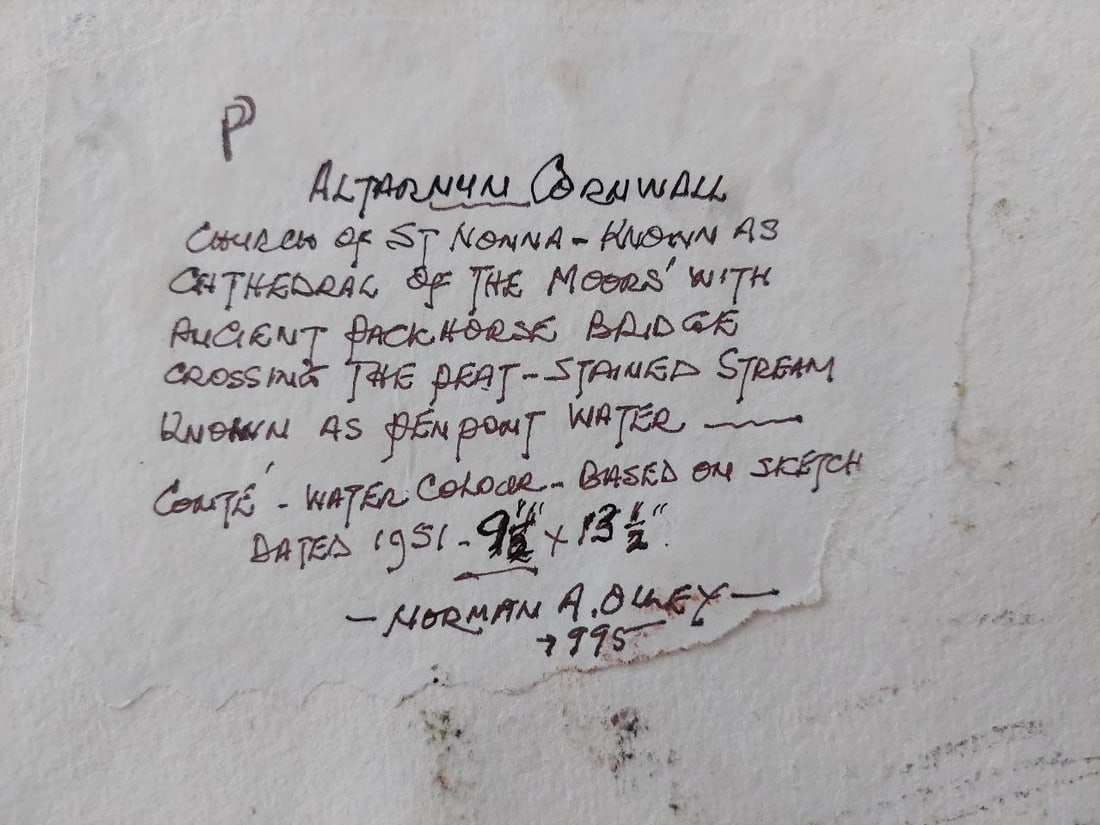 P
ALTARNUN CORNWALL
CHURCH OF ST NONNA - KNOWN AS
CATHEDRAL OF THE MOORS' WITH
ANCIENT PACKHORSE BRIDGE
CROSSING THE PEAT-STAINED STREAM
KNOWN AS PENPONT WATER —
CONTÉ - WATER COLOUR - BASED ON SKETCH
DATED 1951 - 9½" x 13½"
- NORMAN A. OLLEY -
1995